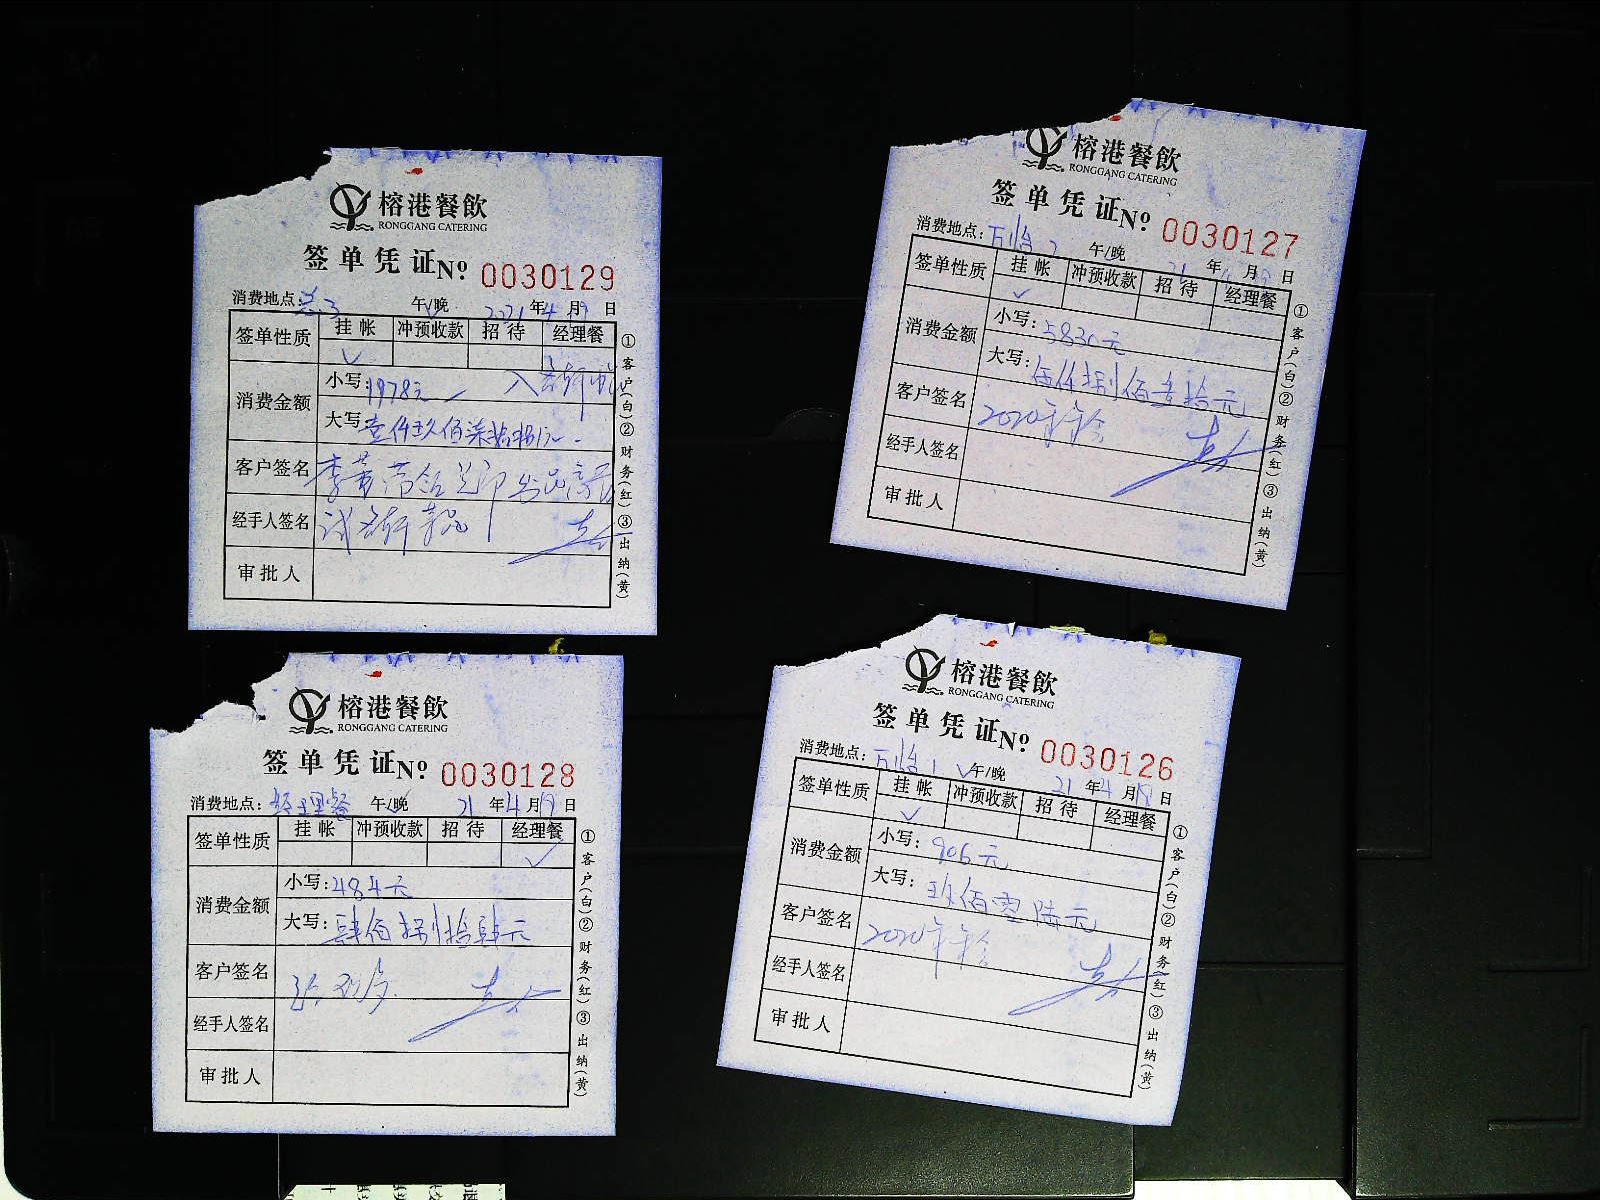 榕港餐飲
RONGGANG CATERING
签单凭证 Nº 0030129
消费地点: 午/晚 2021年4月9日
签单性质 挂帐 冲预收款 招待 经理餐
✓
消费金额 小写: 1978元
大写: 壹仟玖佰柒拾捌元
客户签名
经手人签名
审批人
①客户(白)②财务(红)③出纳(黄)
榕港餐飲
RONGGANG CATERING
签单凭证 Nº 0030127
消费地点: 万怡2 午/晚 21年 月 日
签单性质 挂帐 冲预收款 招待 经理餐
✓
消费金额 小写: 5830元
大写: 伍仟捌佰叁拾元
客户签名 2020年年会
经手人签名
审批人
①客户(白)②财务(红)③出纳(黄)
榕港餐飲
RONGGANG CATERING
签单凭证 Nº 0030128
消费地点: 经理餐 午/晚 21年4月19日
签单性质 挂帐 冲预收款 招待 经理餐
✓
消费金额 小写: 484元
大写: 肆佰捌拾肆元
客户签名
经手人签名
审批人
①客户(白)②财务(红)③出纳(黄)
榕港餐飲
RONGGANG CATERING
签单凭证 Nº 0030126
消费地点: 万怡1 ✓午/晚 21年4月19日
签单性质 挂帐 冲预收款 招待 经理餐
✓
消费金额 小写: 906元
大写: 玖佰零陆元
客户签名 2020年年会
经手人签名
审批人
①客户(白)②财务(红)③出纳(黄)